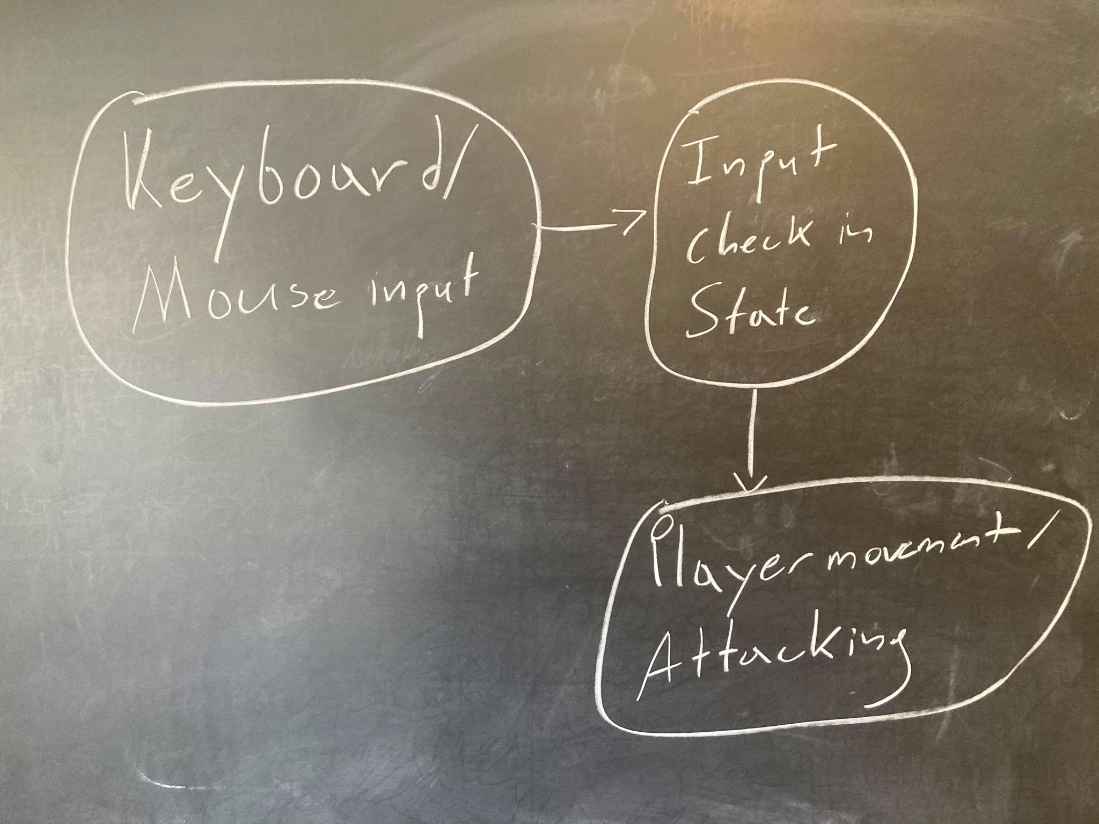 Keyboard/
Mouse input
Input
check in
State
Player movement/
Attacking